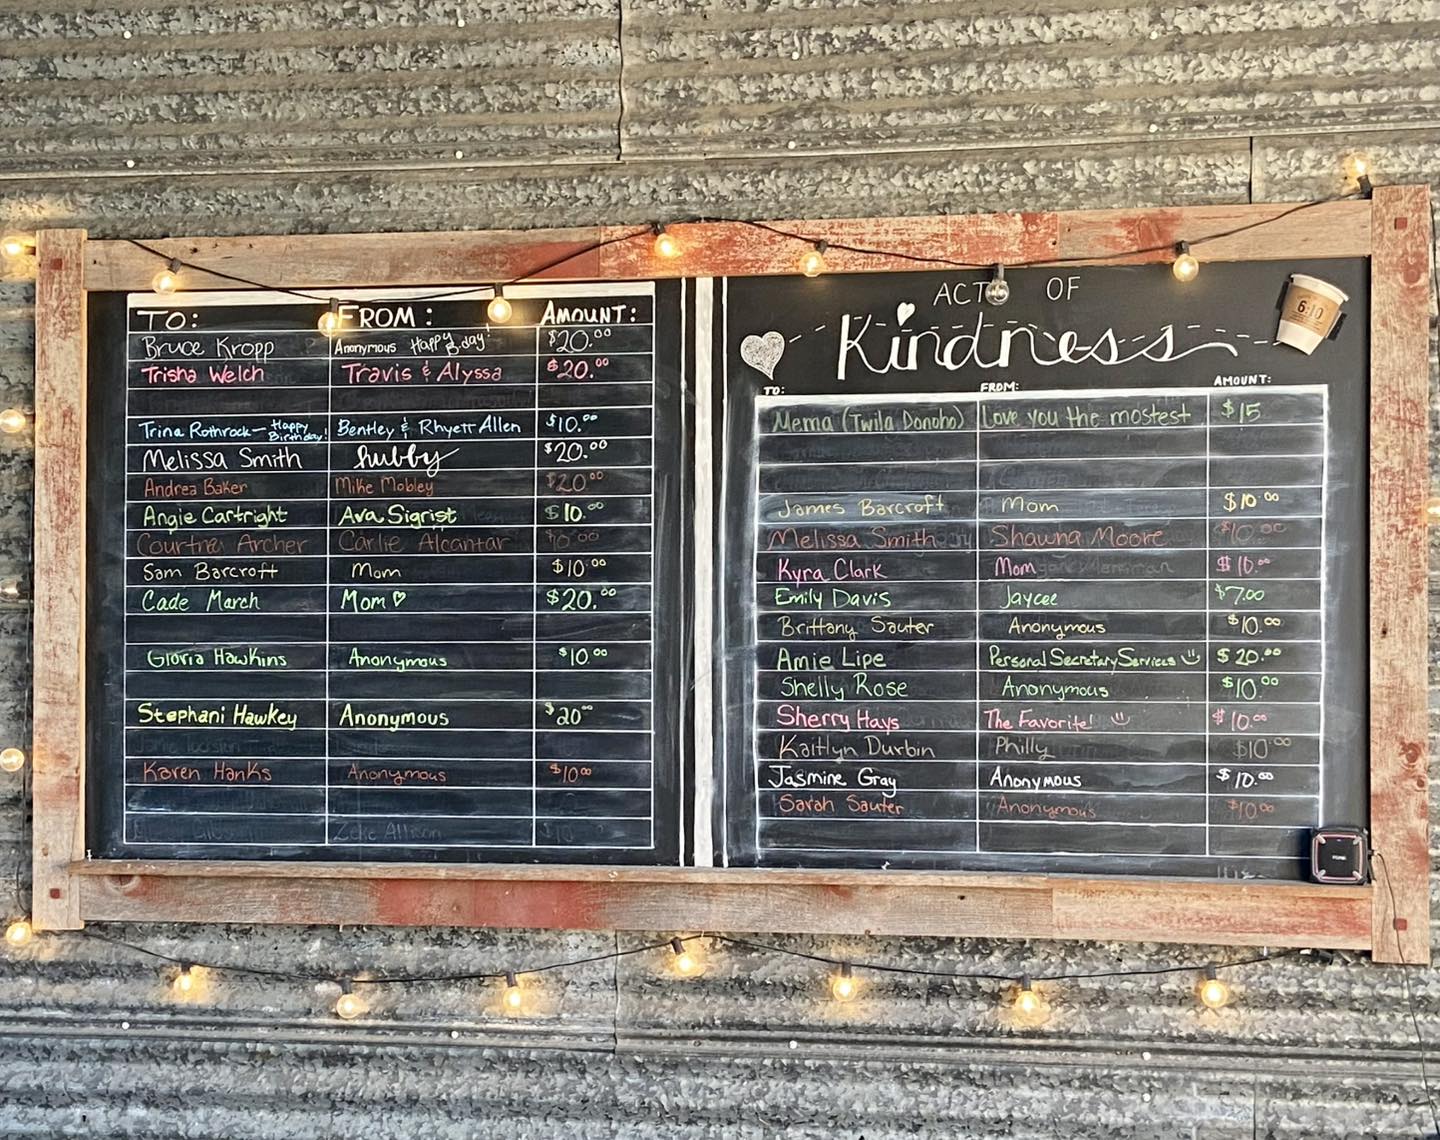 TO: FROM: AMOUNT:
Bruce Kropp Anonymous Happy B-day! $20.00
Trisha Welch Travis & Alyssa $20.00
Trina Rothrock - Happy Birthday! Bentley & Rhyett Allen $10.00
Melissa Smith hubby $20.00
Andrea Baker Mike Mobley $20.00
Angie Cartright Ava Sigrist $10.00
Archer Carlie Alcantar
Sam Barcroft Mom $10.00
Cade March Mom ♡ $20.00
Gloria Hawkins Anonymous $10.00
Stephani Hawkey Anonymous $20.00
Karen Hanks Anonymous $10.00
Zeke Allison $10
ACT OF
Kindness
6:10
TO: FROM: AMOUNT:
Mema (Twila Donoho) Love you the mostest $15
James Barcroft Mom $10.00
Melissa Smith Shawna Moore $10.00
Kyra Clark Mom $10.00
Emily Davis Jaycee $7.00
Brittany Sauter Anonymous $10.00
Amie Lipe Personal Secretary Services $20.00
Shelly Rose Anonymous $10.00
Sherry Hays The Favorite! $10.00
Kaitlyn Durbin Philly $10.00
Jasmine Gray Anonymous $10.00
Sarah Sauter Anonymous $10.00